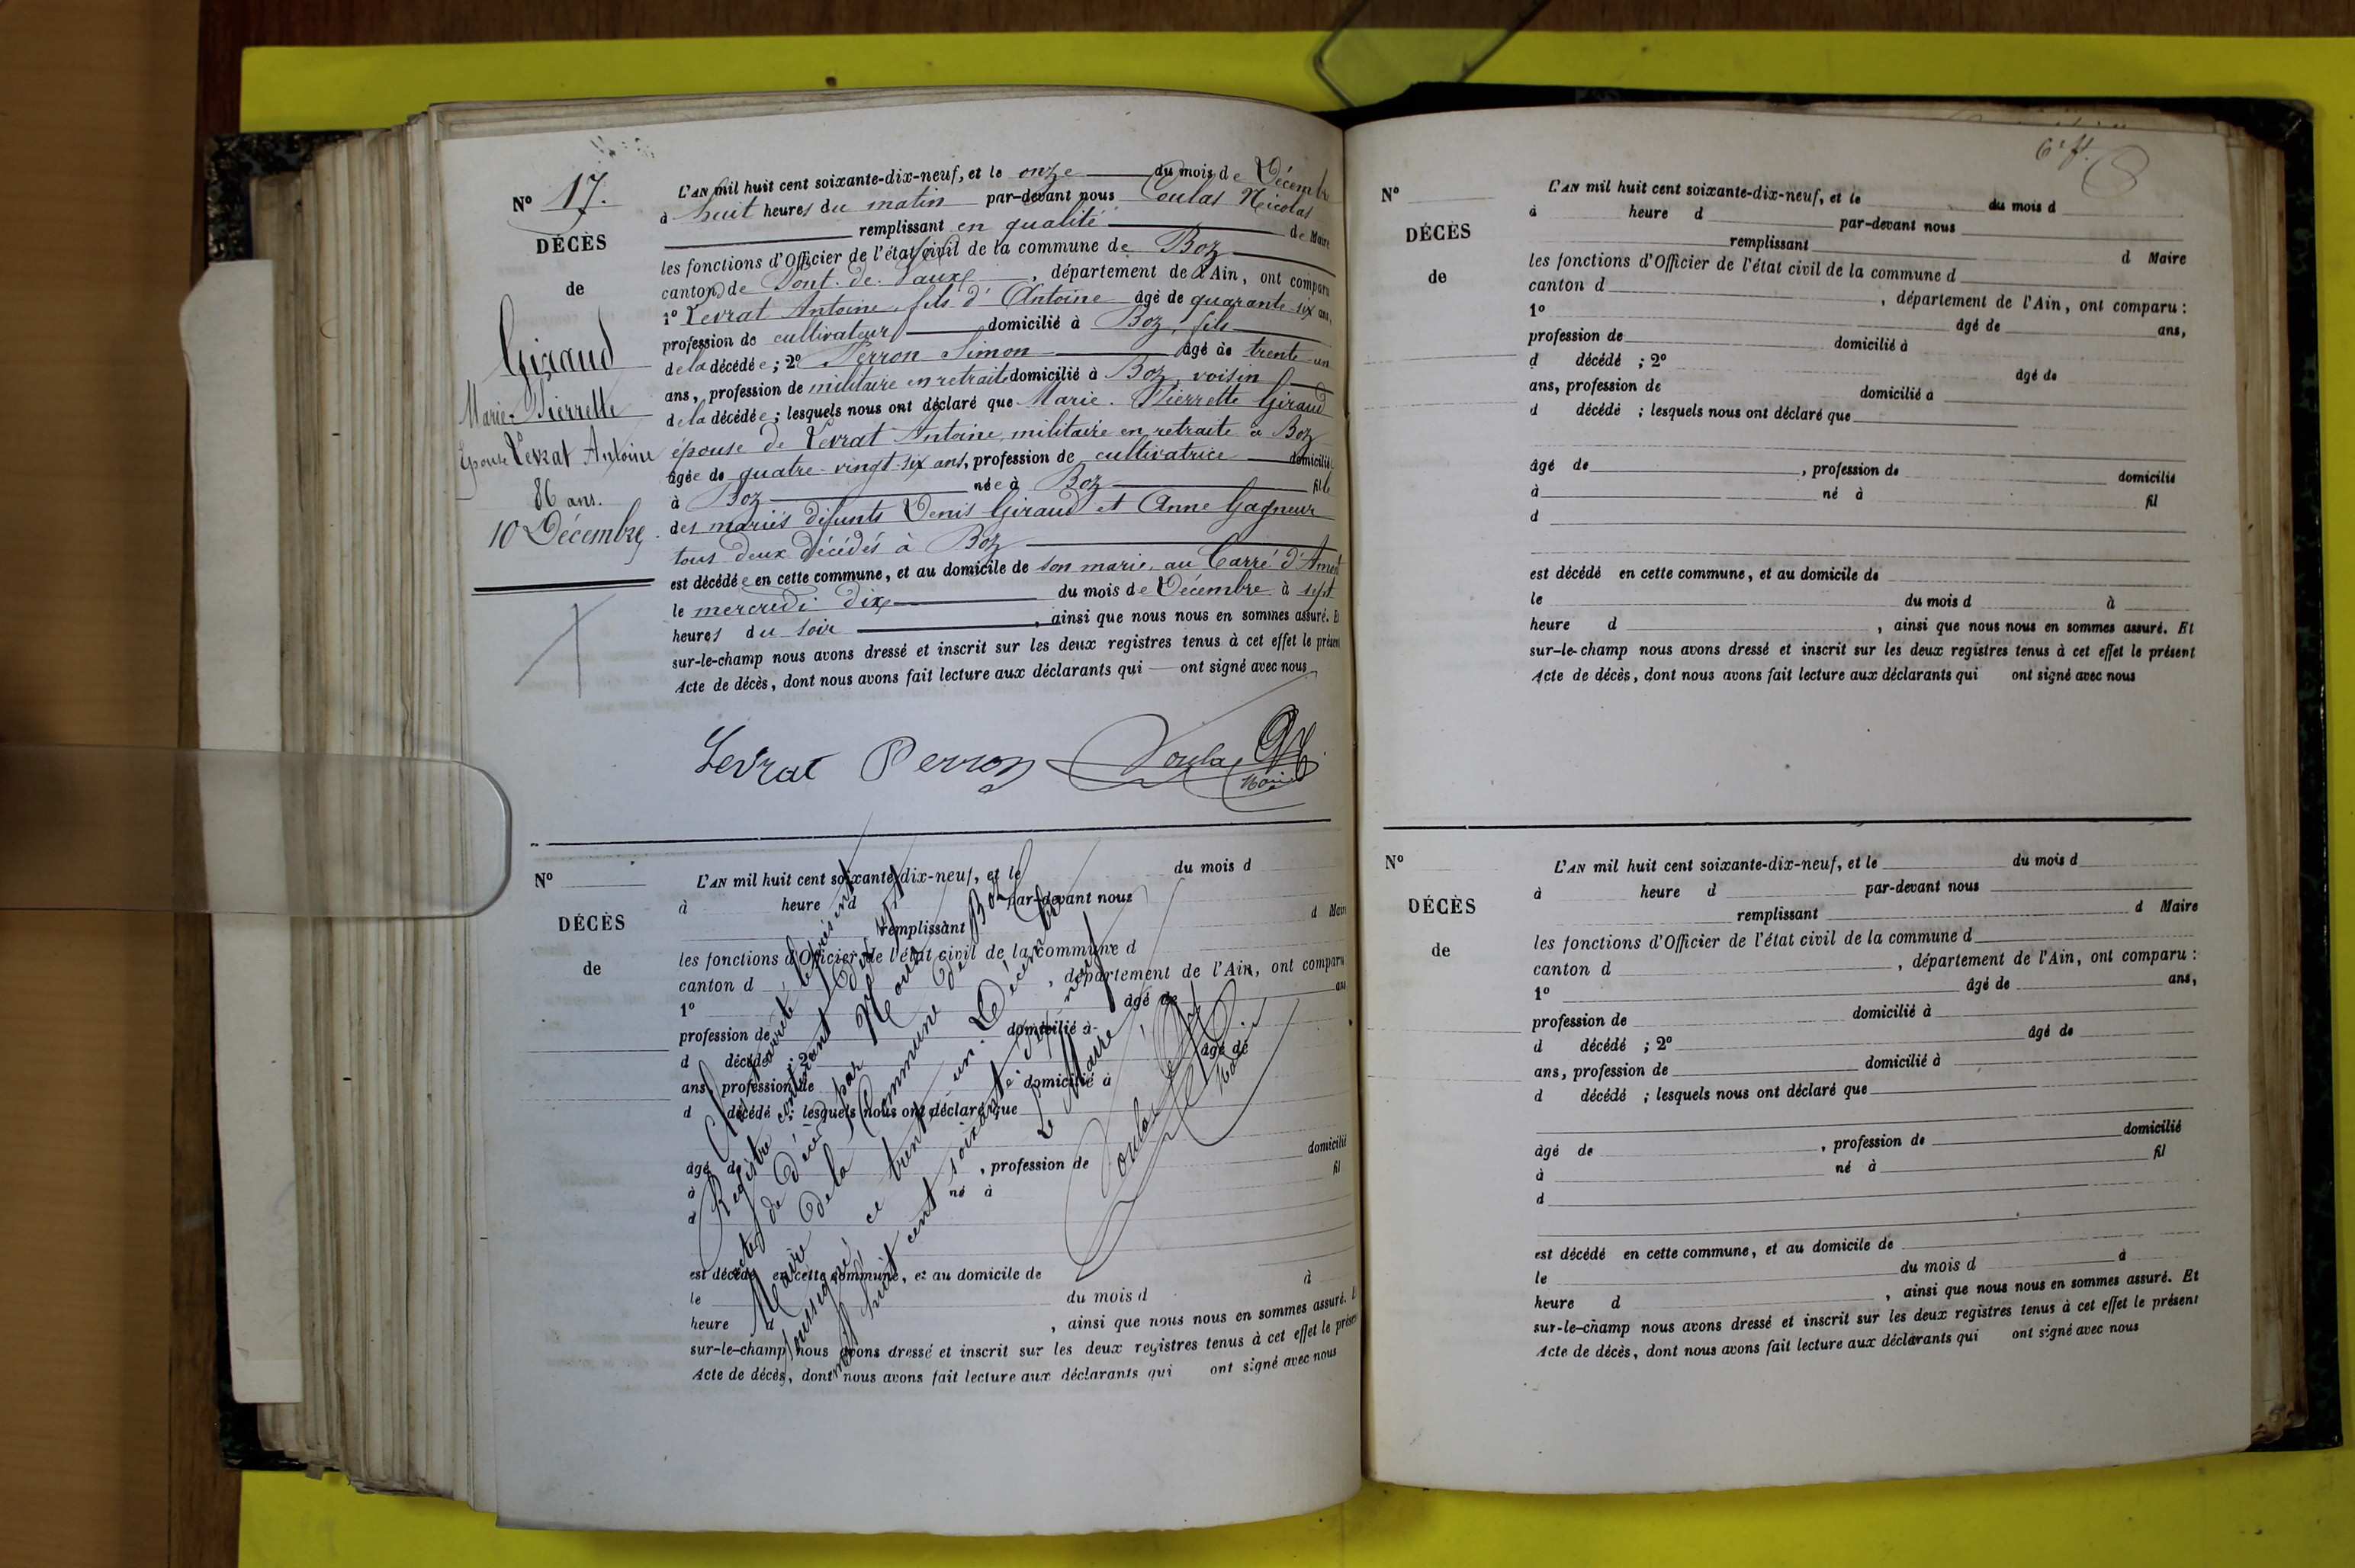 N° 17.
DÉCÈS
de
Giraud
Marie-Pierrette
Epouse Levrat Antoine
86 ans.
10 Décembre
L'AN mil huit cent soixante-dix-neuf, et le onze du mois de Décembre
à huit heures du matin par-devant nous Coulas Nicolas
remplissant en qualité de Maire
les fonctions d'Officier de l'état civil de la commune de Boz
canton de Pont-de-Vaux, département de l'Ain, ont comparu
1° Levrat Antoine, fils d'Antoine âgé de quarante-six ans,
profession de cultivateur domicilié à Boz, fils
de la décédée ; 2° Perron Simon âgé de trente-un
ans, profession de militaire en retraite domicilié à Boz, voisin
de la décédée ; lesquels nous ont déclaré que Marie-Pierrette Giraud
épouse de Levrat Antoine, militaire en retraite à Boz
âgée de quatre-vingt-six ans, profession de cultivatrice domiciliée
à Boz née à Boz fille
des mariés défunts Denis Giraud et Anne Gagneur
tous deux décédés à Boz
est décédée en cette commune, et au domicile de son marie, au Carré d'Amont
le mercredi dix du mois de Décembre à sept
heures du soir, ainsi que nous nous en sommes assuré. Et
sur-le-champ nous avons dressé et inscrit sur les deux registres tenus à cet effet le présent
Acte de décès, dont nous avons fait lecture aux déclarants qui ont signé avec nous
Levrat Perron Coulas
Maire
N°
DÉCÈS
de
L'AN mil huit cent soixante-dix-neuf, et le du mois d
à heure d par-devant nous
remplissant d Maire
les fonctions d'Officier de l'état civil de la commune d
canton d , département de l'Ain, ont comparu
1° âgé de ans
profession de domicilié à
d décédé ; 2° âgé de
ans, profession de domicilié à
d décédé ; lesquels nous ont déclaré que
âgé de , profession de domicilié
à né à fil
d
est décédé en cette commune, et au domicile de
le du mois d à
heure d , ainsi que nous nous en sommes assuré. Et
sur-le-champ nous avons dressé et inscrit sur les deux registres tenus à cet effet le présent
Acte de décès, dont nous avons fait lecture aux déclarants qui ont signé avec nous
Clos et arrêté le présent
Registre contenant Dix sept
actes de décès par Nous
Maire de la Commune de Boz
soussigné, ce trente un Décembre
mil huit cent soixante dix neuf
Le Maire
Coulas
Maire
6e ft.
N°
DÉCÈS
de
L'AN mil huit cent soixante-dix-neuf, et le du mois d
à heure d par-devant nous
remplissant d Maire
les fonctions d'Officier de l'état civil de la commune d
canton d , département de l'Ain, ont comparu :
1° âgé de ans,
profession de domicilié à
d décédé ; 2° âgé de
ans, profession de domicilié à
d décédé ; lesquels nous ont déclaré que
âgé de , profession de domicilié
à né à fil
d
est décédé en cette commune, et au domicile de
le du mois d à
heure d , ainsi que nous nous en sommes assuré. Et
sur-le-champ nous avons dressé et inscrit sur les deux registres tenus à cet effet le présent
Acte de décès, dont nous avons fait lecture aux déclarants qui ont signé avec nous
N°
DÉCÈS
de
L'AN mil huit cent soixante-dix-neuf, et le du mois d
à heure d par-devant nous
remplissant d Maire
les fonctions d'Officier de l'état civil de la commune d
canton d , département de l'Ain, ont comparu :
1° âgé de ans,
profession de domicilié à
d décédé ; 2° âgé de
ans, profession de domicilié à
d décédé ; lesquels nous ont déclaré que
âgé de , profession de domicilié
à né à fil
d
est décédé en cette commune, et au domicile de
le du mois d à
heure d , ainsi que nous nous en sommes assuré. Et
sur-le-champ nous avons dressé et inscrit sur les deux registres tenus à cet effet le présent
Acte de décès, dont nous avons fait lecture aux déclarants qui ont signé avec nous